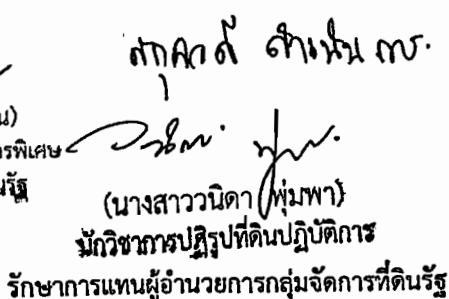 ดำเนินการ.
น)
ารพิเศษ
นรัฐ
(นางสาววนิดา พุ่มพา)
นักวิชาการปฏิรูปที่ดินปฏิบัติการ
รักษาการแทนผู้อำนวยการกลุ่มจัดการที่ดินรัฐ